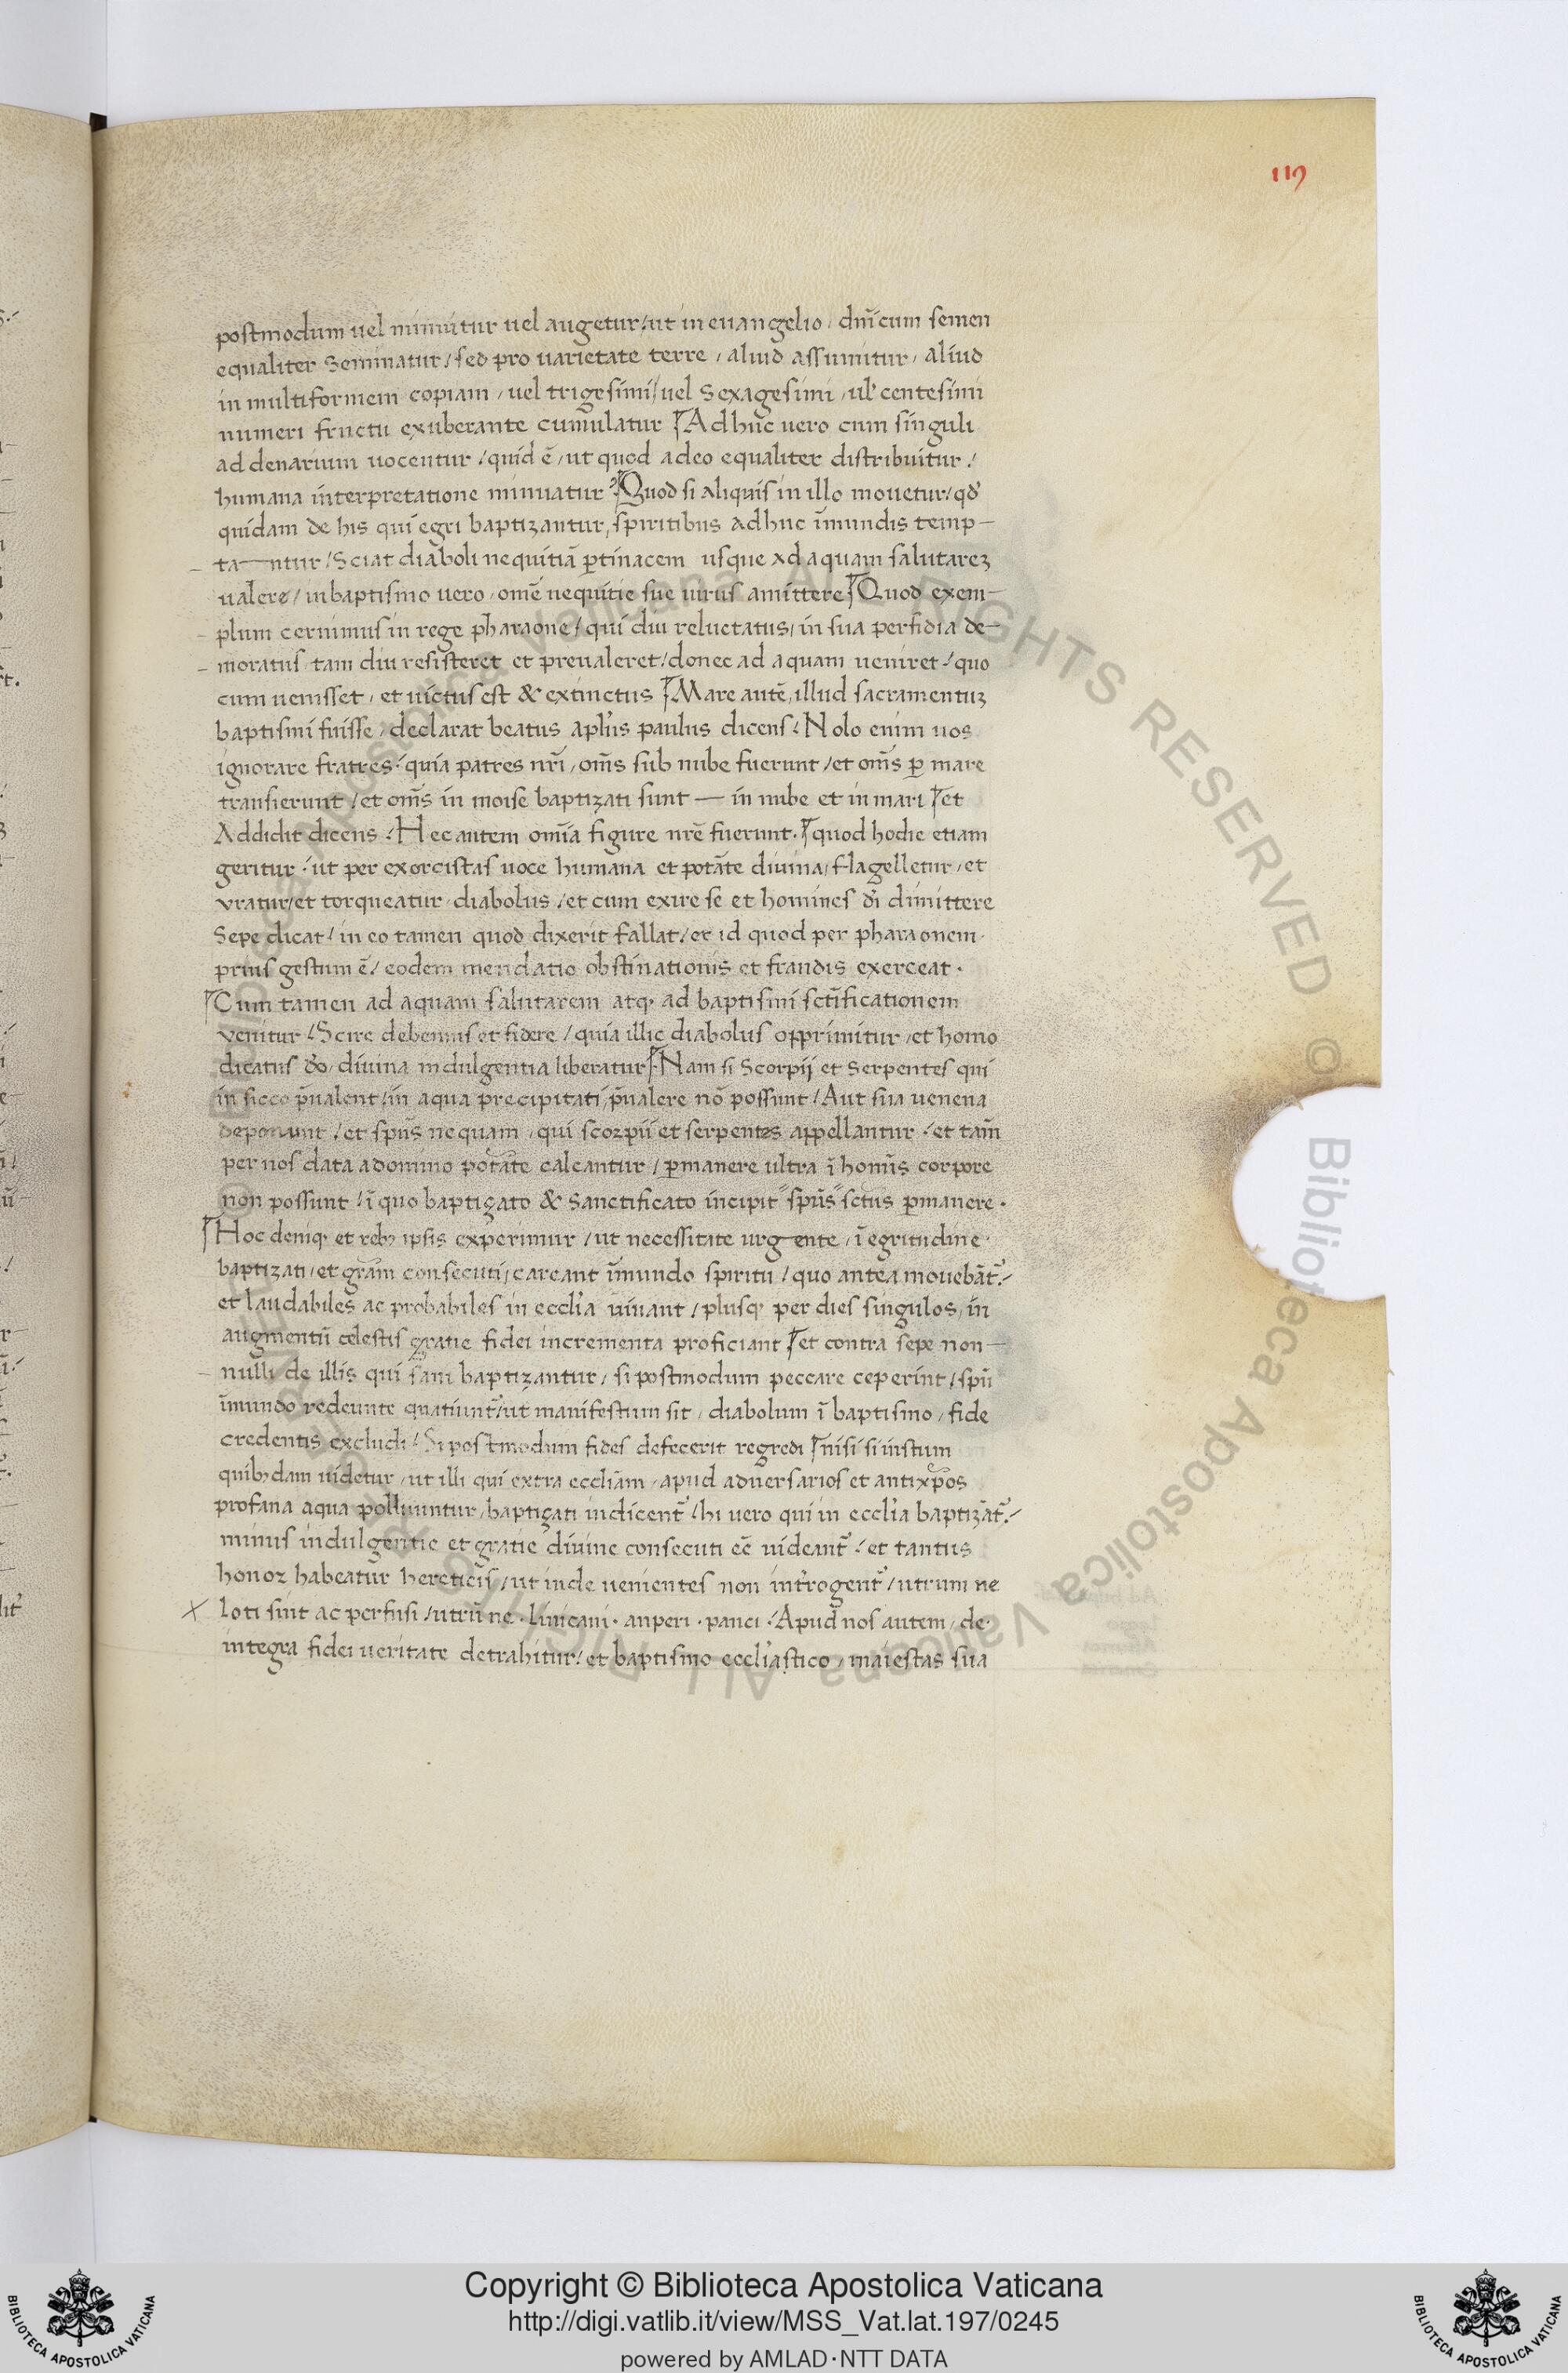 119
postmodum uel minuitur uel augetur/ut in euangelio, dñicum semen
equaliter seminatur/sed pro uarietate terre, aliud assumitur, aliud
in multiformem copiam, uel trigesimi/uel sexagesimi, ul' centesimi
numeri fructu exuberante cumulatur Adhuc uero cum singuli
ad denarium uocentur/quid ē, ut quod a deo equaliter distribuitur/
humana interpretatione minuatur? Quod si aliquis in illo mouetur/qd'
quidam de his qui egri baptizantur, spiritibus adhuc īmundis temp—
ta—ntur/Sciat diaboli nequitiā ꝑtinacem usque ad aquam salutareꝫ
ualere/in baptismo uero, omē nequitie sue uirus amittere Quod exem—
plum cernimus in rege pharaone/qui diu reluctatus, in sua perfidia de—
moratus tam diu resisteret et preualeret/donec ad aquam ueniret/quo
cum uenisset, et uictus est & extinctus Mare autē, illud sacramentuꝫ
baptismi fuisse, declarat beatus apl'us paulus dicens/Nolo enim uos
ignorare fratres/quia patres nr̄i, om̄s sub nube fuerunt/et om̄s ꝑ mare
transierunt/et om̄s in moise baptizati sunt — in nube et in mari et
Addidit dicens/Hec autem omīa figure nr̄e fuerunt. quod hodie etiam
geritur. ut per exorcistas uoce humana et potāte diuina/flagelletur, et
vratur/et torqueatur diabolus/et cum exire se et homines dī dimittere
Sepe dicat/in eo tamen quod dixerit fallat/et id quod per pharaonem
prius gestum ē/eodem mendatio obstinationis et fraudis exerceat.
Cum tamen ad aquam salutarem atq. ad baptismi sct̄ificationem
venitur/Scire debemus et fidere/quia illic diabolus opprimitur, et homo
dicatus dō, diuina indulgentia liberatur. Nam si Scorpij et Serpentes qui
in sicco p̄ualent/in aqua precipitati, p̄ualere nō possunt/Aut sua uenena
deponunt/et spūs nequam, qui scorpii et serpentes appellantur/et tam̄
per nos data a domino potāte calcantur/ꝑmanere ultra ī homīs corpore
non possunt/ī quo baptizato & Sanctificato incipit "spūs" sctūs ꝑmanere.
Hoc deniq. et rebꝫ ipsis experimur/ut necessitate urg—ente, ī egritudine
baptizati, et grām consecuti, careant īmundo spiritu/quo antea mouebāt̄./
et laudabiles ac probabiles in eccl'ia uiuant/plusq. per dies singulos, in
augmentū celestis gratie fidei incrementa proficiant et contra sepe non—
nulli de illis qui sani baptizantur/si postmodum peccare ceperint/spū
īmundo redeunte quatiunt̄/ut manifestum sit, diabolum ī baptismo, fide
credentis excludi/Si postmodum fides defecerit regredi nisi si iustum
quibꝫdam uidetur, ut illi qui extra eccliām, apud aduersarios et antixp̄os
profana aqua polluuntur, baptizati iudicent̄/hi uero qui in eccl'ia baptizāt̄./
minus indulgentie et gratie diuine consecuti eē uideant̄/et tantus
honoꝛ habeatur hereticis/ut inde uenientes non int'rogent̄/utrum ne
loti sint ac perfusi/utrū ne. linicani. an peri. panci/Apud nos autem, de.
integra fidei ueritate detrahitur/et baptismo eccl'iastico, maiestas sua
Copyright © Biblioteca Apostolica Vaticana
http://digi.vatlib.it/view/MSS_Vat.lat.197/0245
powered by AMLAD·NTT DATA
BIBLIOTECA APOSTOLICA VATICANA
BIBLIOTECA APOSTOLICA VATICANA